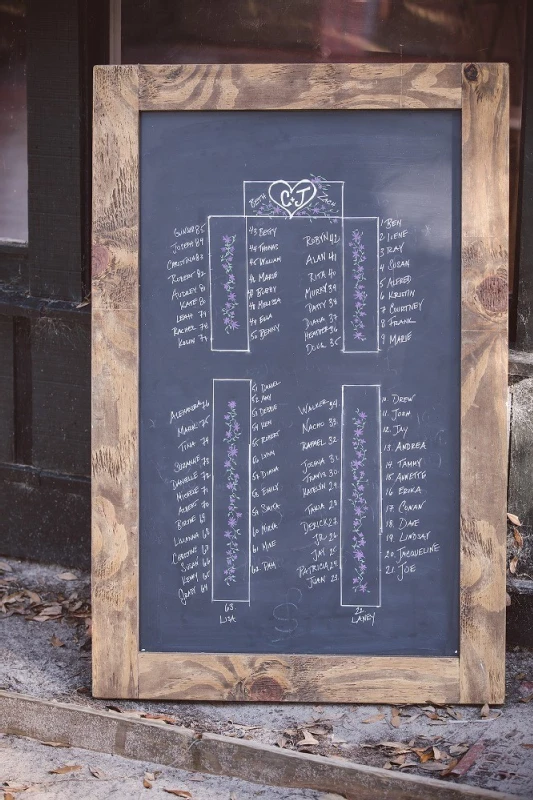 BETH
C+J
GINGER 85
JOSEPH 84
CHRISTINA 83
ROBERT 82
AUDREY 81
KATE 81
LEAH 79
RACHEL 78
KOLIN 77
43 BETSY
44 THOMAS
45 WILLIAM
46 MARIE
48 MELISSA
49 ELLA
50 BENNY
ROBYN 42
ALAN 41
RITA 40
MURRY 39
PATTY 38
DIANA 37
HEATHER 36
DOUG 35
1 BEN
2 ILENE
3 RAY
4 SUSAN
5 ALFRED
6 KRISTIN
7 COURTNEY
8 FRANK
9 MARIE
ALEXANDRA 76
MARK 75
TINA 74
SUZANNE
DANIELLE 72
MICHELE 71
ALBERT 70
LILLIANNA 68
CHRISTINE
SUSAN 66
KENNY 65
GRADY 64
51 DANIEL
52 AMY
53 DEBBIE
54 KEN
55 ROBERT
56 LYNN
58 DIANA
58 EMILY
61 MIKE
62 TINA
63
LISA
WALKER 34
NACHO 33
RAFAEL 32
JOSHUA 31
TRAVIS 30
KATELYN 29
TANIA 28
DERICK 27
JR 26
JAY 25
PATRICIA
JOHN 23
10 DREW
11 JOSH
12 JAY
13 ANDREA
14 TAMMY
15 ANNETTE
16 ERIKA
17 CONAN
18 DAVE
19 LINDSAY
20 JACQUELINE
21 JOE
22
LANEY